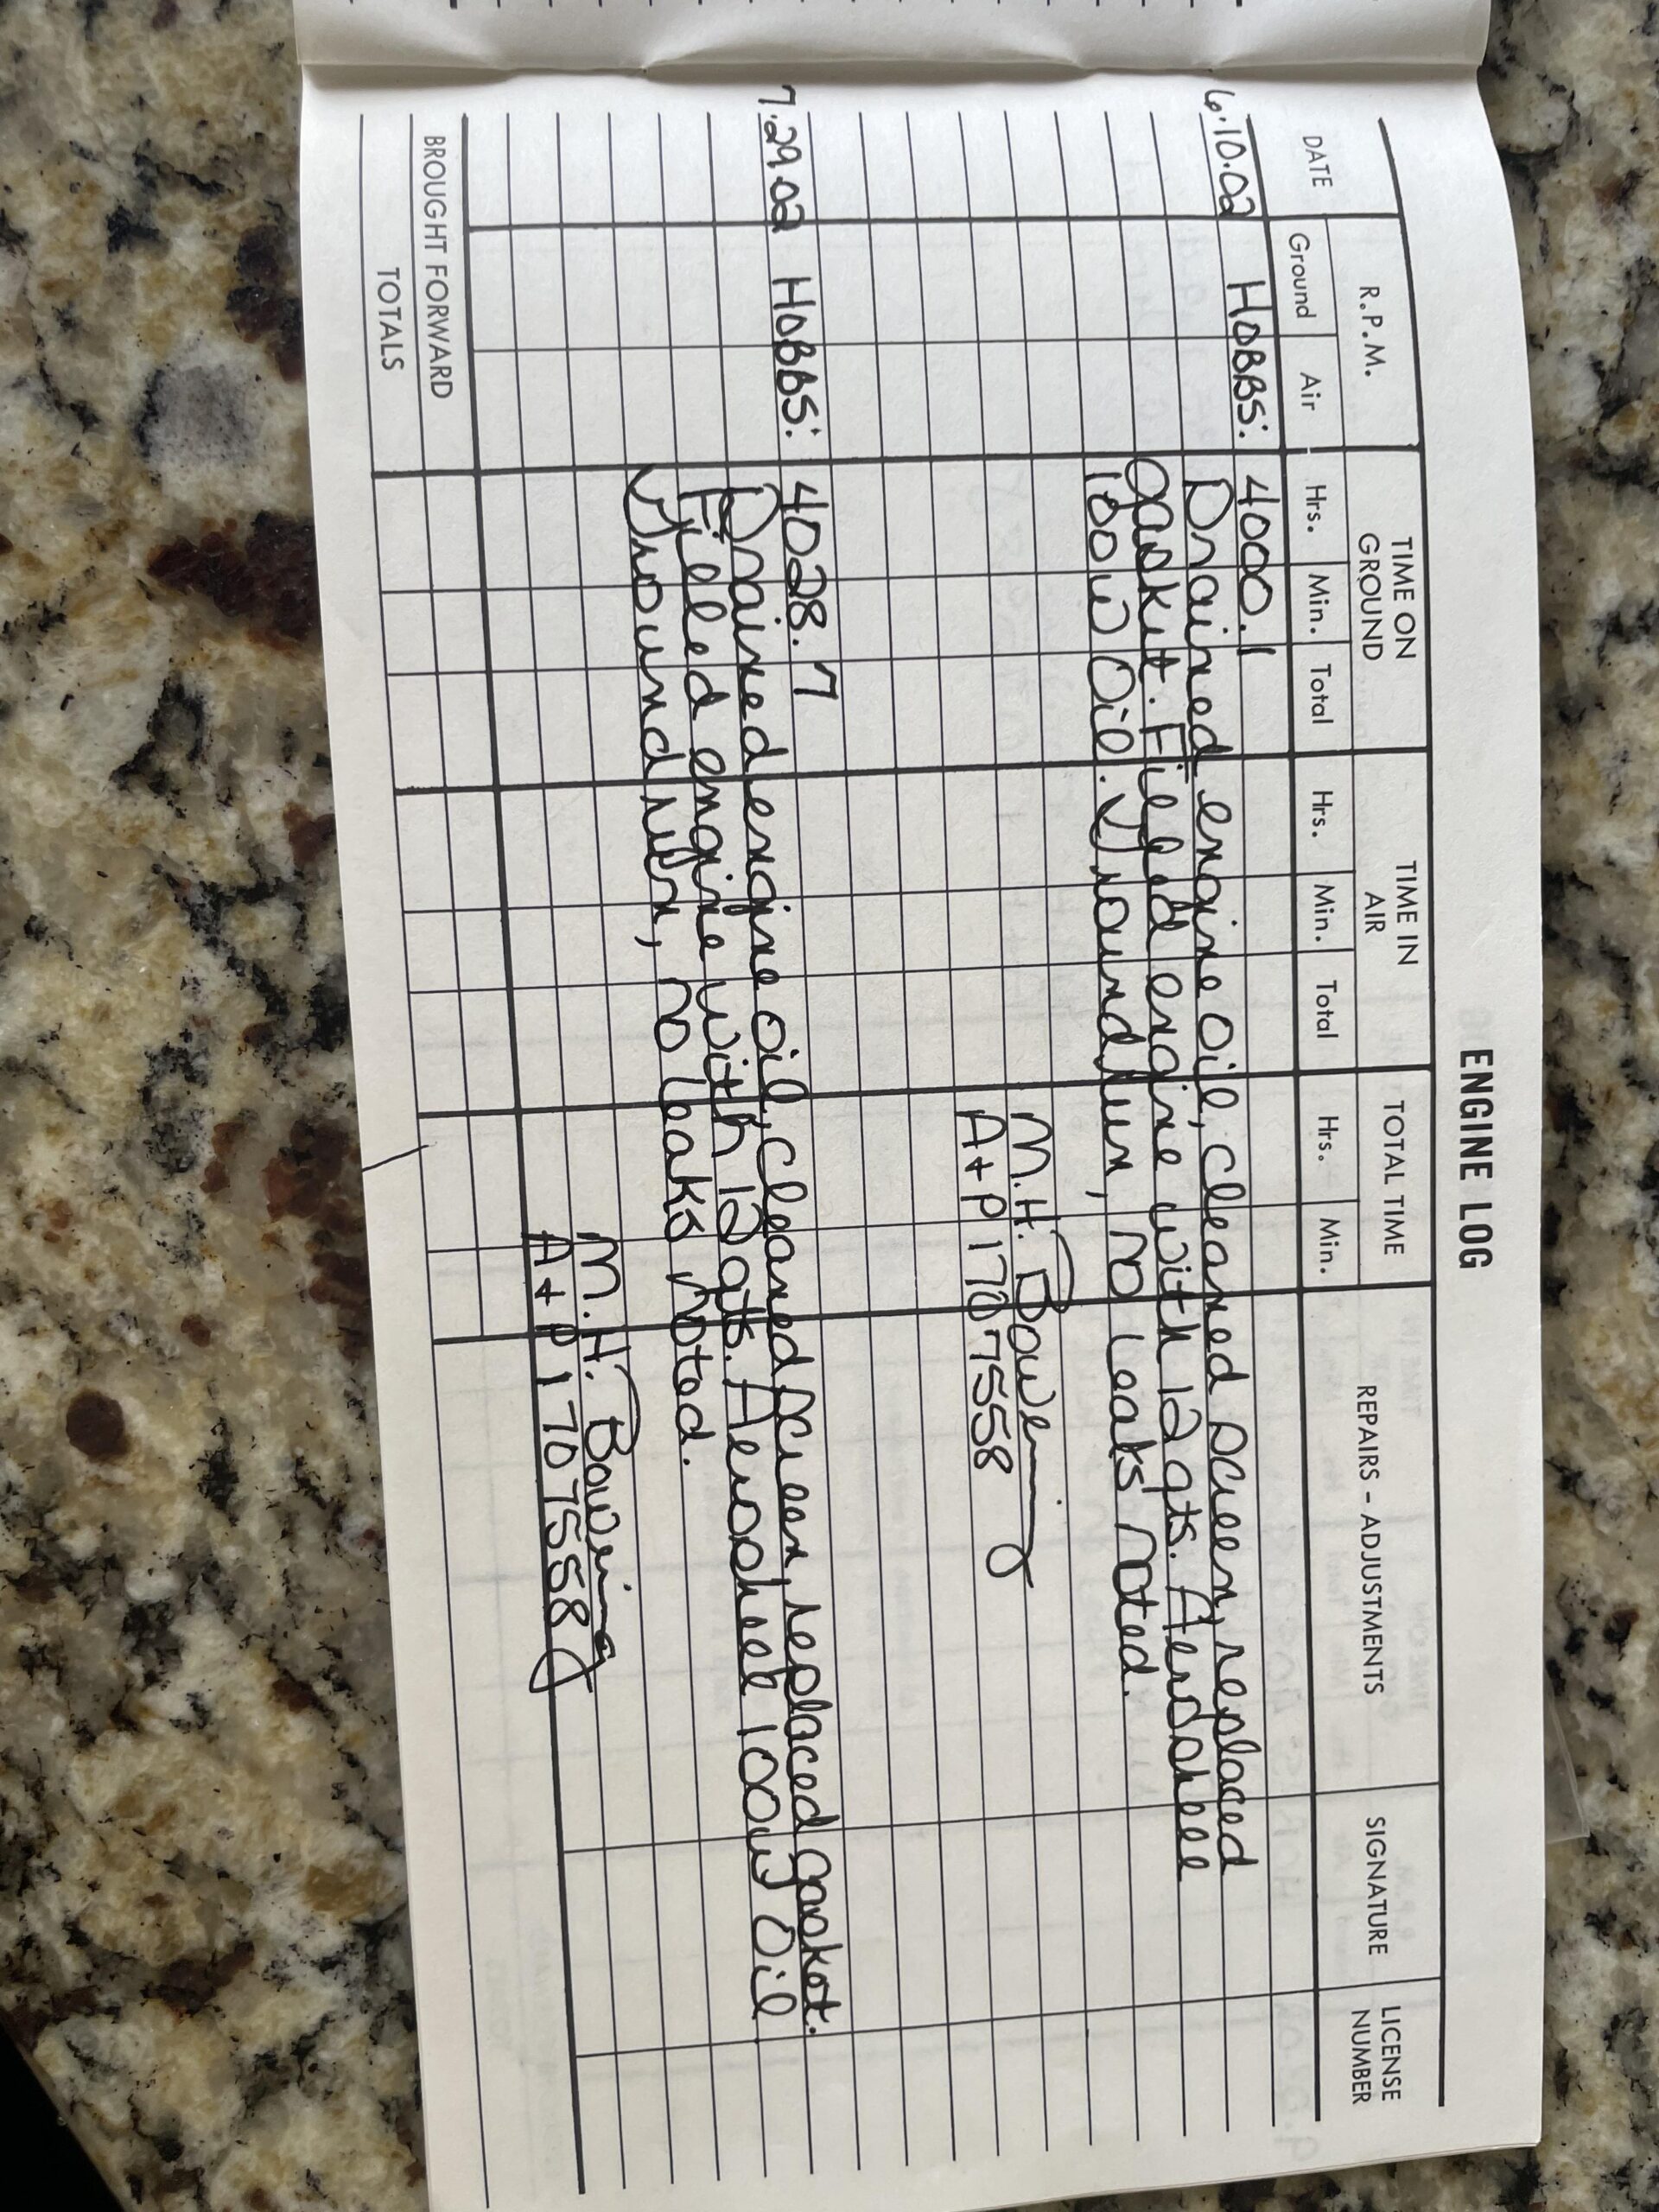 ENGINE LOG
DATE R.P.M. TIME ON GROUND TIME IN AIR TOTAL TIME REPAIRS - ADJUSTMENTS SIGNATURE LICENSE NUMBER
Ground Air Hrs. Min. Total Hrs. Min. Total Hrs. Min.
6.10.02 HOBBS: 4000.1
Drained engine oil, cleaned screen, replaced
gasket. Filled engine with 12 qts. Aeroshell
100W Oil. Ground run, no leaks noted.
M.H. Bowering
A+P 1707558
7.29.02 HOBBS: 4028.7
Drained engine oil, cleaned screen, replaced gasket.
Filled engine with 12 qts. Aeroshell 100W Oil
Ground run, no leaks noted.
M.H. Bowering
A+P 1707558
BROUGHT FORWARD
TOTALS